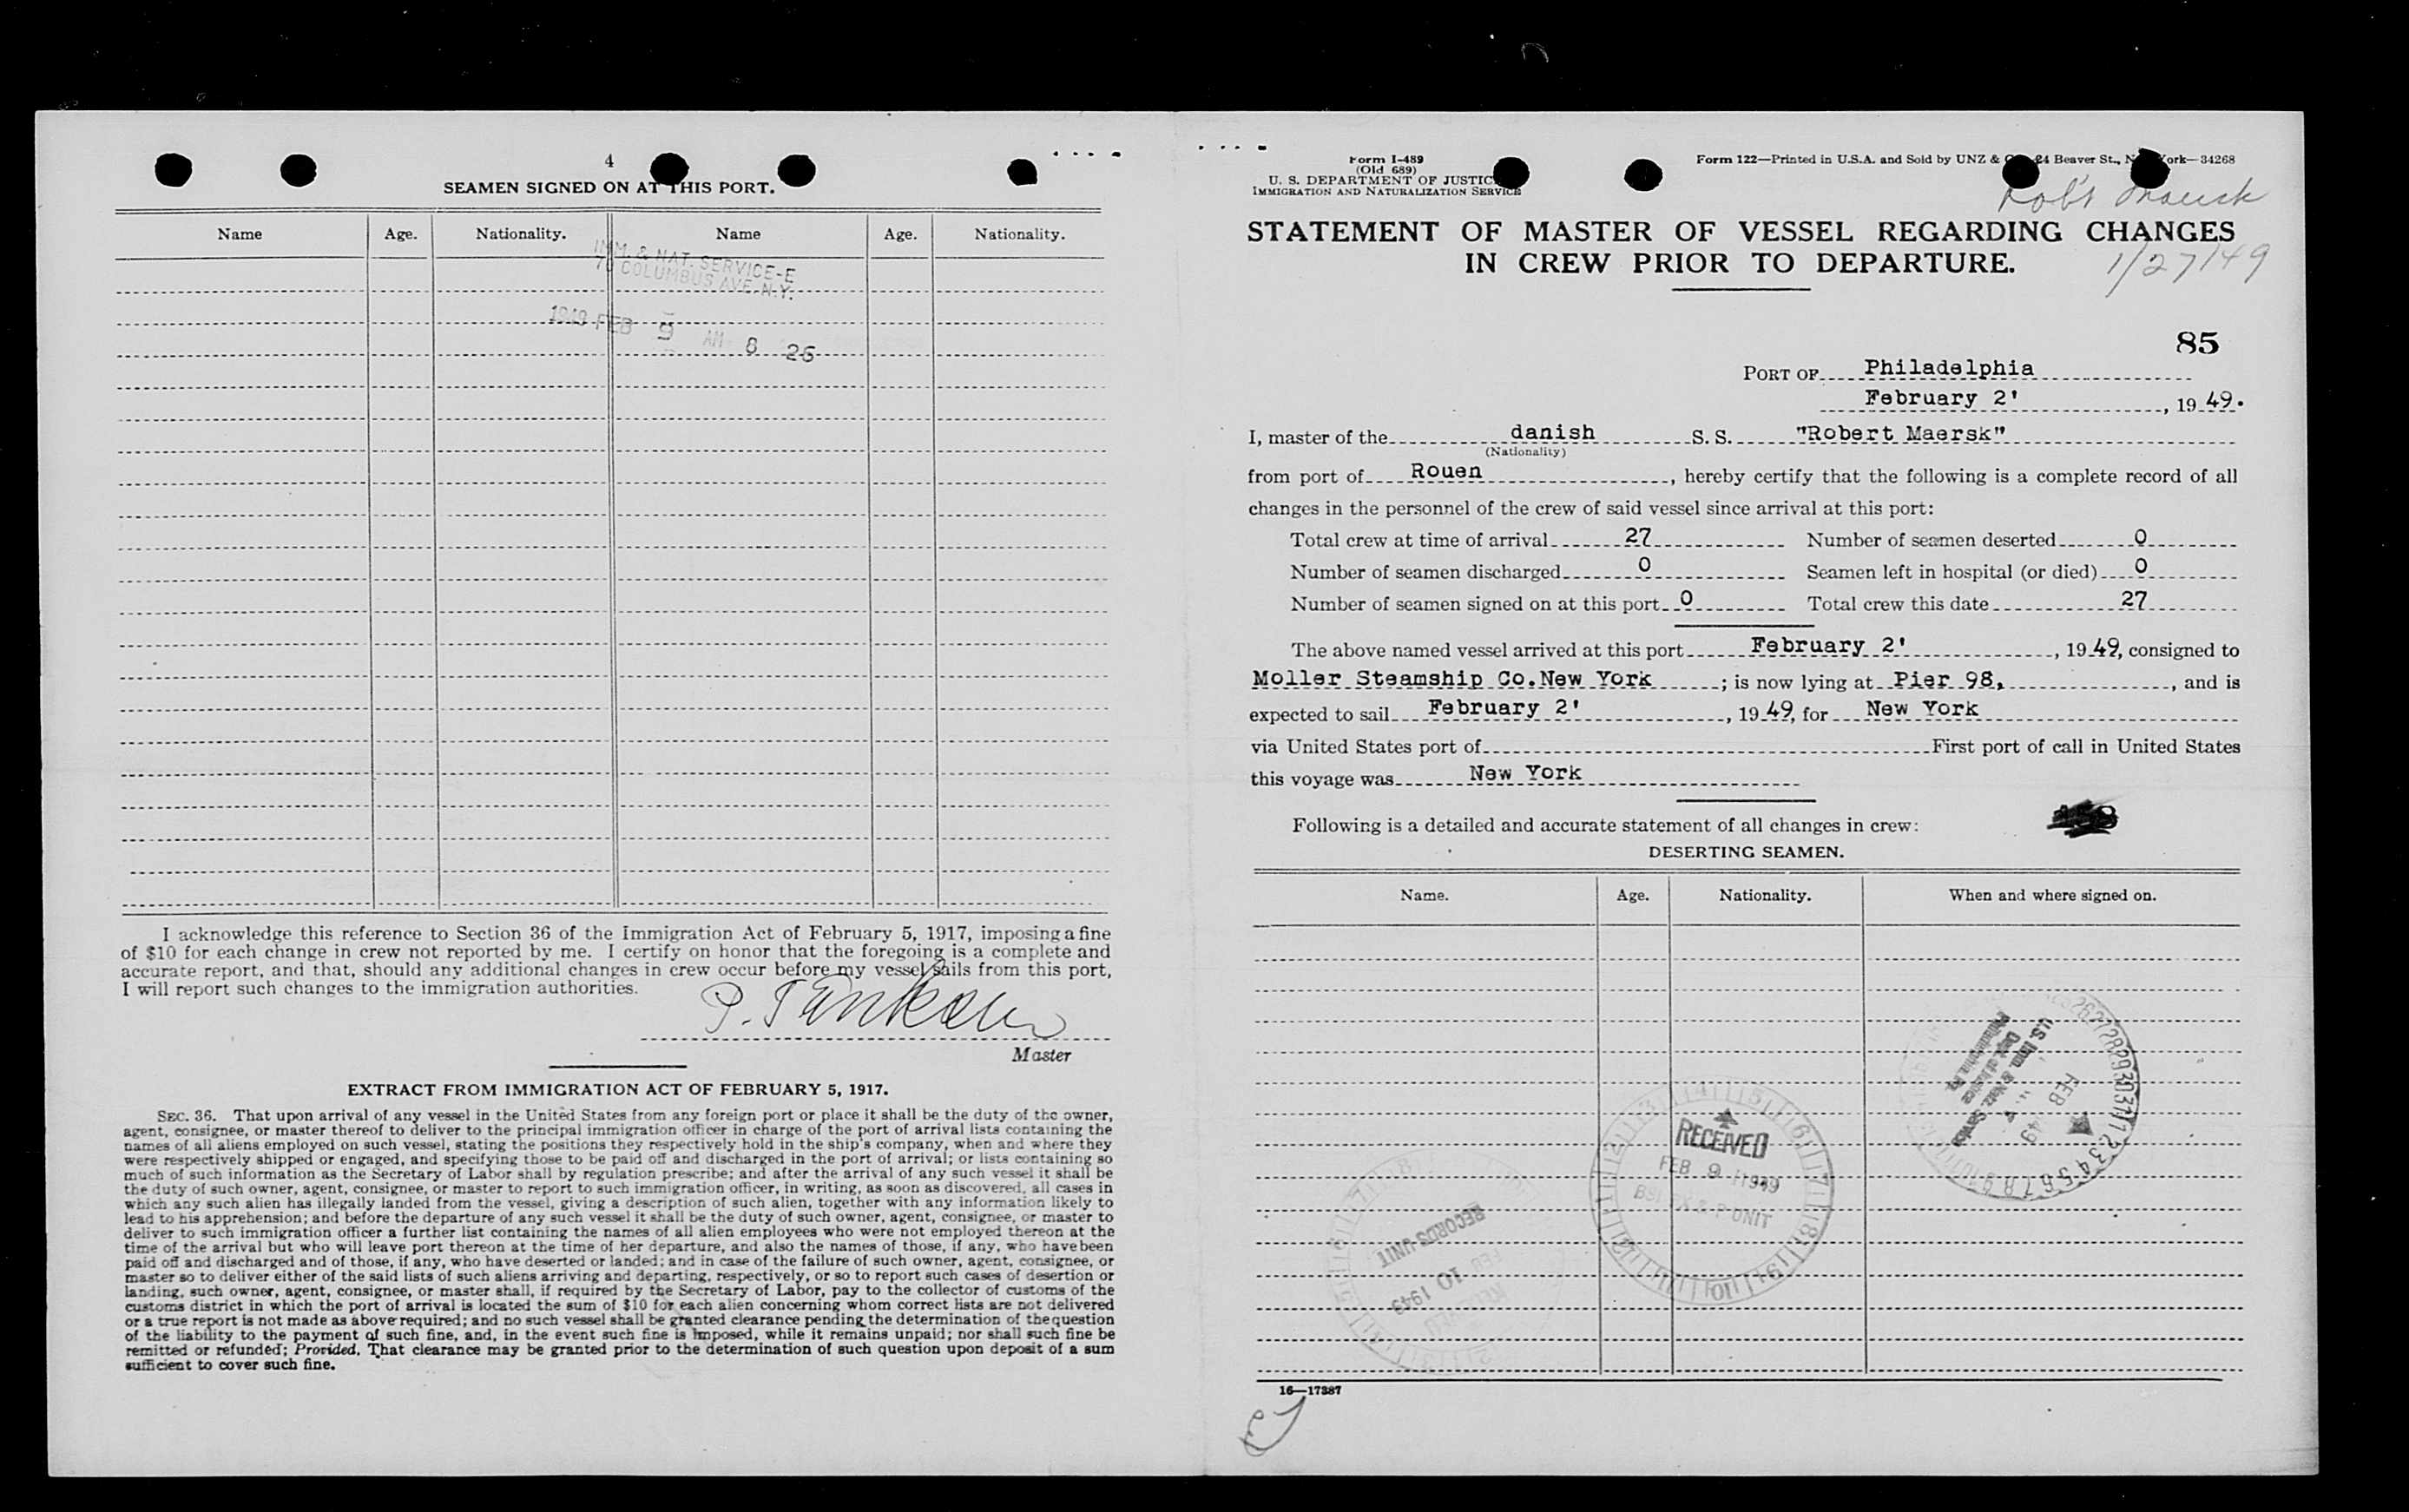 4
SEAMEN SIGNED ON AT THIS PORT.
Name Age. Nationality. Name Age. Nationality.
IMM. & NAT. SERVICE-E
70 COLUMBUS AVE. N.Y.
1949 FEB 9 AM 8 26
I acknowledge this reference to Section 36 of the Immigration Act of February 5, 1917, imposing a fine
of $10 for each change in crew not reported by me. I certify on honor that the foregoing is a complete and
accurate report, and that, should any additional changes in crew occur before my vessel sails from this port,
I will report such changes to the immigration authorities.
P.
Master
EXTRACT FROM IMMIGRATION ACT OF FEBRUARY 5, 1917.
SEC. 36. That upon arrival of any vessel in the United States from any foreign port or place it shall be the duty of the owner,
agent, consignee, or master thereof to deliver to the principal immigration officer in charge of the port of arrival lists containing the
names of all aliens employed on such vessel, stating the positions they respectively hold in the ship's company, when and where they
were respectively shipped or engaged, and specifying those to be paid off and discharged in the port of arrival; or lists containing so
much of such information as the Secretary of Labor shall by regulation prescribe; and after the arrival of any such vessel it shall be
the duty of such owner, agent, consignee, or master to report to such immigration officer, in writing, as soon as discovered, all cases in
which any such alien has illegally landed from the vessel, giving a description of such alien, together with any information likely to
lead to his apprehension; and before the departure of any such vessel it shall be the duty of such owner, agent, consignee, or master to
deliver to such immigration officer a further list containing the names of all alien employees who were not employed thereon at the
time of the arrival but who will leave port thereon at the time of her departure, and also the names of those, if any, who have been
paid off and discharged and of those, if any, who have deserted or landed; and in case of the failure of such owner, agent, consignee, or
master so to deliver either of the said lists of such aliens arriving and departing, respectively, or so to report such cases of desertion or
landing, such owner, agent, consignee, or master shall, if required by the Secretary of Labor, pay to the collector of customs of the
customs district in which the port of arrival is located the sum of $10 for each alien concerning whom correct lists are not delivered
or a true report is not made as above required; and no such vessel shall be granted clearance pending the determination of the question
of the liability to the payment of such fine, and, in the event such fine is imposed, while it remains unpaid; nor shall such fine be
remitted or refunded; Provided, That clearance may be granted prior to the determination of such question upon deposit of a sum
sufficient to cover such fine.
Form I-489
(Old 689)
U. S. DEPARTMENT OF JUSTICE
IMMIGRATION AND NATURALIZATION SERVICE
Form 122—Printed in U.S.A. and Sold by UNZ & 24 Beaver St., New York—34268
Rob't Maersk
STATEMENT OF MASTER OF VESSEL REGARDING CHANGES
IN CREW PRIOR TO DEPARTURE.
1/27/49
85
PORT OF Philadelphia
February 2' , 19 49.
I, master of the danish S. S. "Robert Maersk"
(Nationality)
from port of Rouen , hereby certify that the following is a complete record of all
changes in the personnel of the crew of said vessel since arrival at this port:
Total crew at time of arrival 27 Number of seamen deserted 0
Number of seamen discharged 0 Seamen left in hospital (or died) 0
Number of seamen signed on at this port 0 Total crew this date 27
The above named vessel arrived at this port February 2' , 19 49, consigned to
Moller Steamship Co. New York ; is now lying at Pier 98, , and is
expected to sail February 2' , 19 49, for New York
via United States port of First port of call in United States
this voyage was New York
Following is a detailed and accurate statement of all changes in crew:
DESERTING SEAMEN.
Name. Age. Nationality. When and where signed on.
U.S. Imm. & Natz. Service
Dept. of Justice
Philadelphia, Pa.
FEB 49
RECEIVED
FEB 9 1949
UNIT
RECORDS UNIT
FEB 10 1949
16—17387